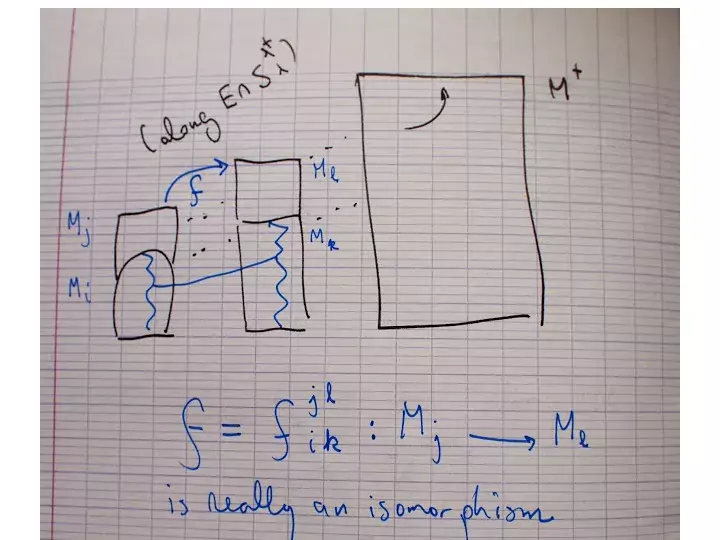 (along E ∩ S
M⁺
f
M_l
M_j
M_k
M_i
f = f^{jl}_{ik} : M_j ⟶ M_l
is really an isomorphism